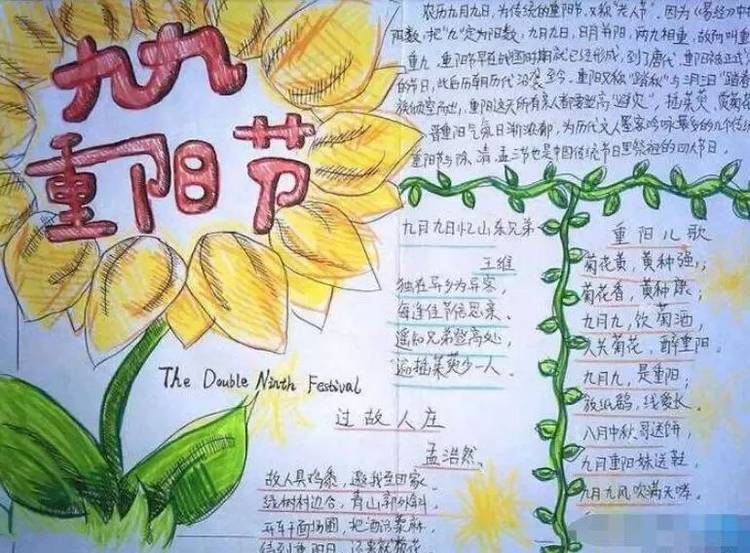 九九
重阳节
农历九月九日，为传统的重阳节，又称"老人节"。因为《易经》中
两数，把"九"定为阳数，九月九日，日月并阳，两九相重，故而叫重
重九，重阳节早在战国时期就已经形成，到了唐代，重阳被正式
的节日，此后历朝历代沿袭至今。重阳又称"踏秋"与三月三日"踏春
族倾室而出，重阳这天所有亲人都要登高"避灾"，插茱萸、赏菊
重阳节与除、清、盂三节也是中国传统节日里祭祖的四大节日。
九月九日忆山东兄弟
王维
独在异乡为异客，
每逢佳节倍思亲。
遥知兄弟登高处，
遍插茱萸少一人。
重阳儿歌
菊花黄，黄种强；
菊花香，黄种康；
九月九，饮菊酒，
人共菊花，醉重阳。
九月九，是重阳；
放纸鹞，线爱长。
八月中秋哥送饼，
九月重阳妹送鞋，
九月九风吹满天哮。
The Double Ninth Festival
过故人庄
孟浩然
故人具鸡黍，邀我至田家
绿树村边合，青山郭外斜
开轩面场圃，把酒话桑麻
待到重阳日，还来就菊花